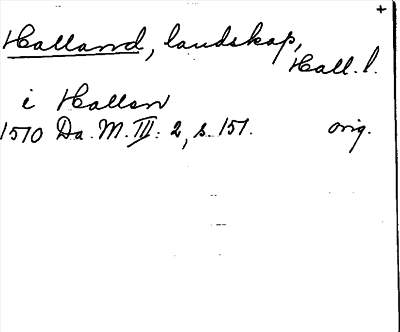 +
Halland, landskap,
Hall. l.
i Hallan
1510 Da. M. III: 2, s. 151. orig.